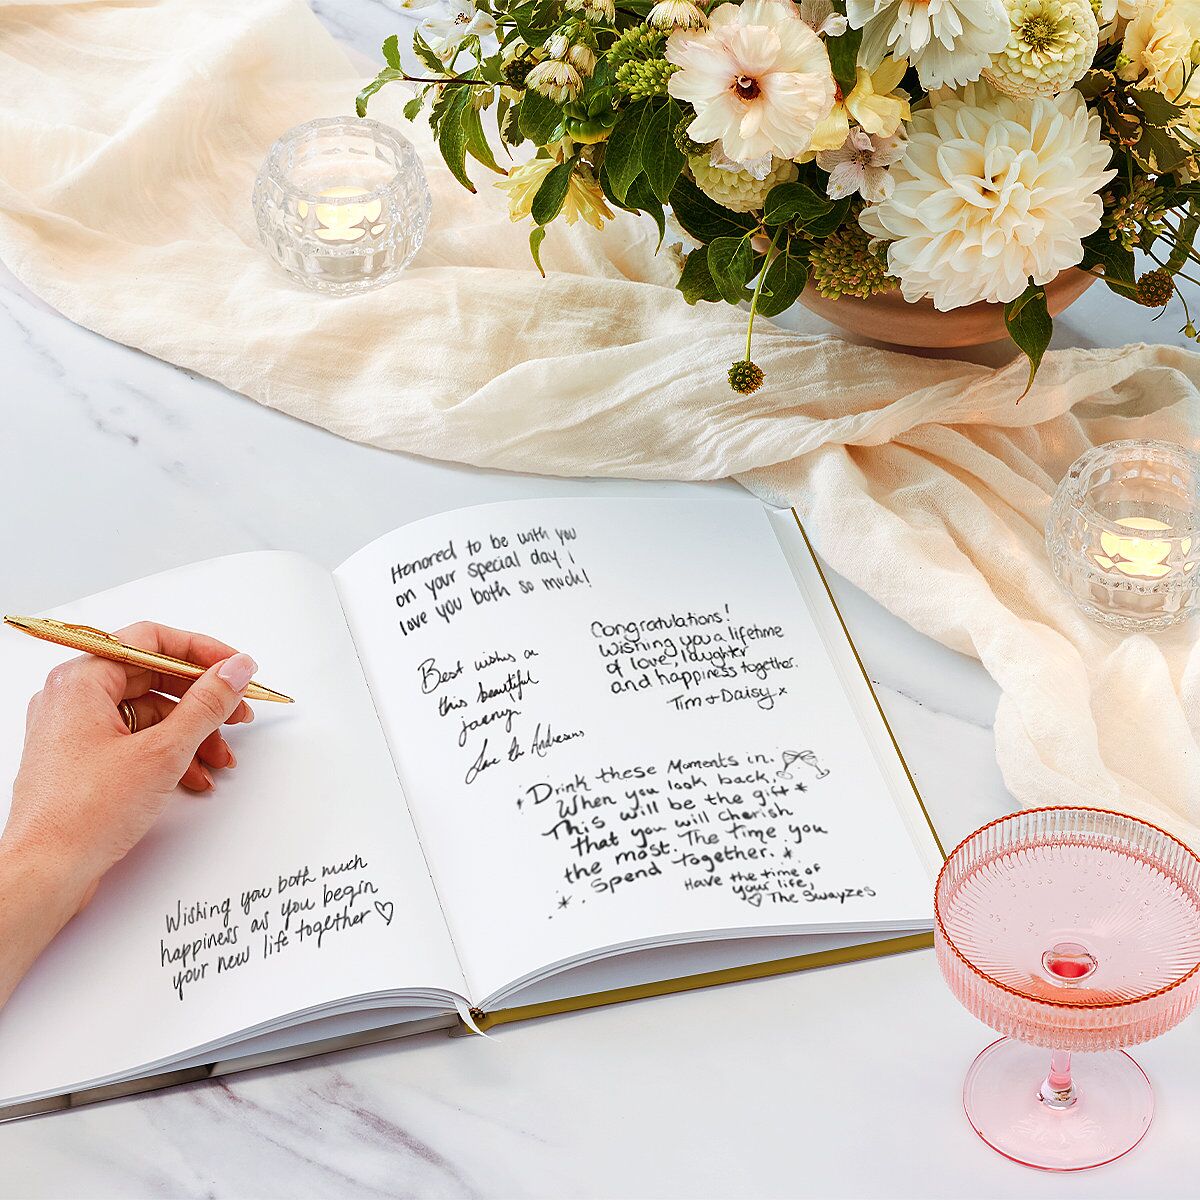 Wishing you both much
happiness as you begin
your new life together ♡
Honored to be with you
on your special day I
love you both so much!
Congratulations!
Wishing you a lifetime
of love, laughter
and happiness together.
Tim + Daisy x
Best wishes on
this beautiful
journey
Love
Drink these Moments in.
When you look back,
This will be the gift *
that you will cherish
the most. The time you
spend together. *
Have the time of
your life,
♡ The Swayzes